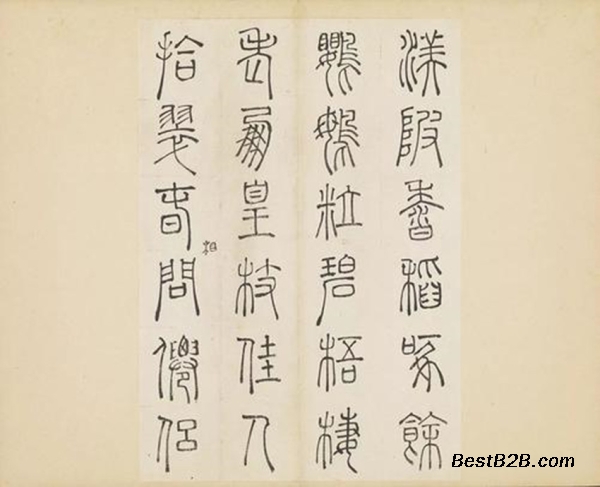 渼陂香稻啄餘
鸚鵡粒碧梧棲
老鳳皇枝佳人
拾翠春問僊侶
相
BestB2B.com